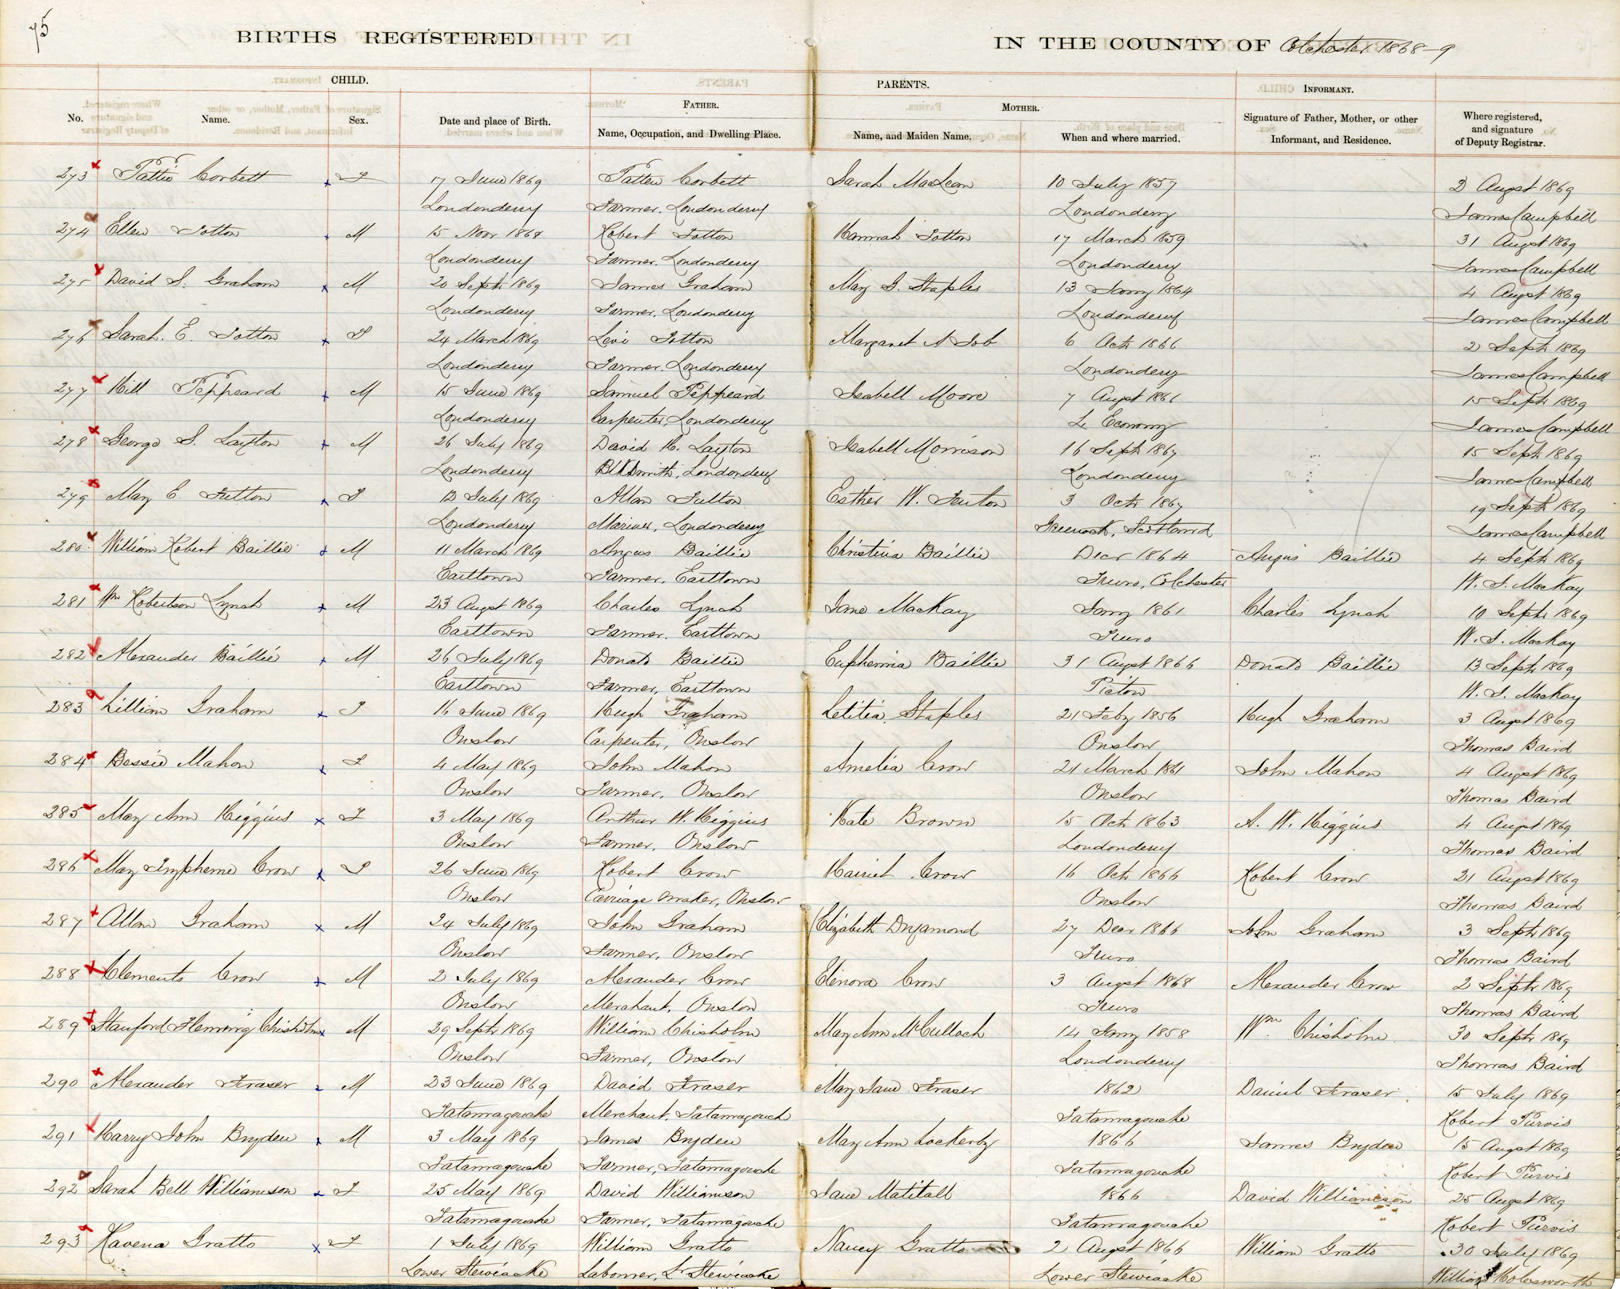 75
BIRTHS REGISTERED IN THE COUNTY OF Colchester 1868-9
CHILD. PARENTS. INFORMANT.
FATHER. MOTHER.
No. Name. Sex. Date and place of Birth. Name, Occupation, and Dwelling Place. Name, and Maiden Name. When and where married. Signature of Father, Mother, or other Informant, and Residence. Where registered, and signature of Deputy Registrar.
273 Corbett F 17 June 1869 Corbett Sarah MacLean 10 July 1857 2 August 1869
Londonderry Farmer, Londonderry Londonderry James Campbell
274 Ellen Totton M 15 Novr 1868 Robert Totton Hannah Totton 17 March 1859 31 August 1869
Londonderry Farmer, Londonderry Londonderry James Campbell
275 David S. Graham M 20 Septr 1869 James Graham Mary G. Staples 13 Jany 1864 4 August 1869
Londonderry Farmer, Londonderry Londonderry James Campbell
276 Sarah E. Totton F 24 March 1869 Levi Totton Margaret A 6 Octr 1866 2 Septr 1869
Londonderry Farmer, Londonderry Londonderry James Campbell
277 Hill Peppeard M 15 June 1869 Samuel Peppeard Isabell Moore 7 August 1861 15 Septr 1869
Londonderry Carpenter, Londonderry Lr Economy James Campbell
278 George S. Layton M 26 July 1869 David H. Layton Isabell Morrison 16 Septr 1867 15 Septr 1869
Londonderry Blksmith, Londonderry Londonderry James Campbell
279 May E Fulton F 13 July 1869 Allan Fulton Esther W. Fulton 3 Octr 1867 19 Septr 1869
Londonderry Mariner, Londonderry Greenock, Scotland James Campbell
280 William Robert Baillie M 11 March 1869 Angus Baillie Christina Baillie Decr 1864 Angus Baillie 4 Septr 1869
Earltown Farmer, Earltown Truro, Colchester W. S. MacKay
281 Wm Robertson Lynch M 23 August 1869 Charles Lynch Jane MacKay Jany 1861 Charles Lynch 10 Septr 1869
Earltown Farmer, Earltown Truro W. S. MacKay
282 Alexander Baillie M 26 July 1869 Donald Baillie Euphemia Baillie 31 August 1866 Donald Baillie 13 Septr 1869
Earltown Farmer, Earltown Picton W. S. MacKay
283 Lilliam Graham F 16 June 1869 Hugh Graham Letitia Staples 21 Feby 1856 Hugh Graham 3 August 1869
Onslow Carpenter, Onslow Onslow Thomas Baird
284 Bessie Mahon F 4 May 1869 John Mahon Amelia Crow 21 March 1861 John Mahon 4 August 1869
Onslow Farmer, Onslow Onslow Thomas Baird
285 May Ann Higgins F 3 May 1869 Arthur W. Higgins Kate Brown 15 Octr 1863 A. W. Higgins 4 August 1869
Onslow Farmer, Onslow Londonderry Thomas Baird
286 May Crow F 26 June 1869 Robert Crow Hariet Crow 16 Octr 1866 Robert Crow 21 August 1869
Onslow Carriage maker, Onslow Onslow Thomas Baird
287 Allan Graham M 24 July 1869 John Graham Elizabeth Drysmond 27 Decr 1866 John Graham 3 Septr 1869
Onslow Farmer, Onslow Truro Thomas Baird
288 Clements Crow M 2 July 1869 Alexander Crow Elenora Crow 3 August 1868 Alexander Crow 2 Septr 1869
Onslow Merchant, Onslow Truro Thomas Baird
289 Stanford Fleming Chisholm M 29 Septr 1869 William Chisholm May Ann McCulloch 14 Jany 1858 Wm Chisholm 30 Septr 1869
Onslow Farmer, Onslow Londonderry Thomas Baird
290 Alexander Fraser M 23 June 1869 David Fraser May Jane Fraser 1862 Daniel Fraser 15 July 1869
Tatamagouche Merchant, Tatamagouch Tatamagouche Robert Purvis
291 Harry John Bryden M 3 May 1869 James Bryden May Ann Lockerby 1866 James Bryden 15 August 1869
Tatamagouche Farmer, Tatamagouche Tatamagouche Robert Purvis
292 Sarah Bell Williamson F 25 May 1869 David Williamson Jane Matitall 1866 David Williamson 25 August 1869
Tatamagouche Farmer, Tatamagouche Tatamagouche Robert Purvis
293 Havena Gratto F 1 July 1869 William Gratto Nancy Gratto 2 August 1866 William Gratto 30 July 1869
Lower Stewiacke Labourer, Lr Stewiacke Lower Stewiacke William Holesworth